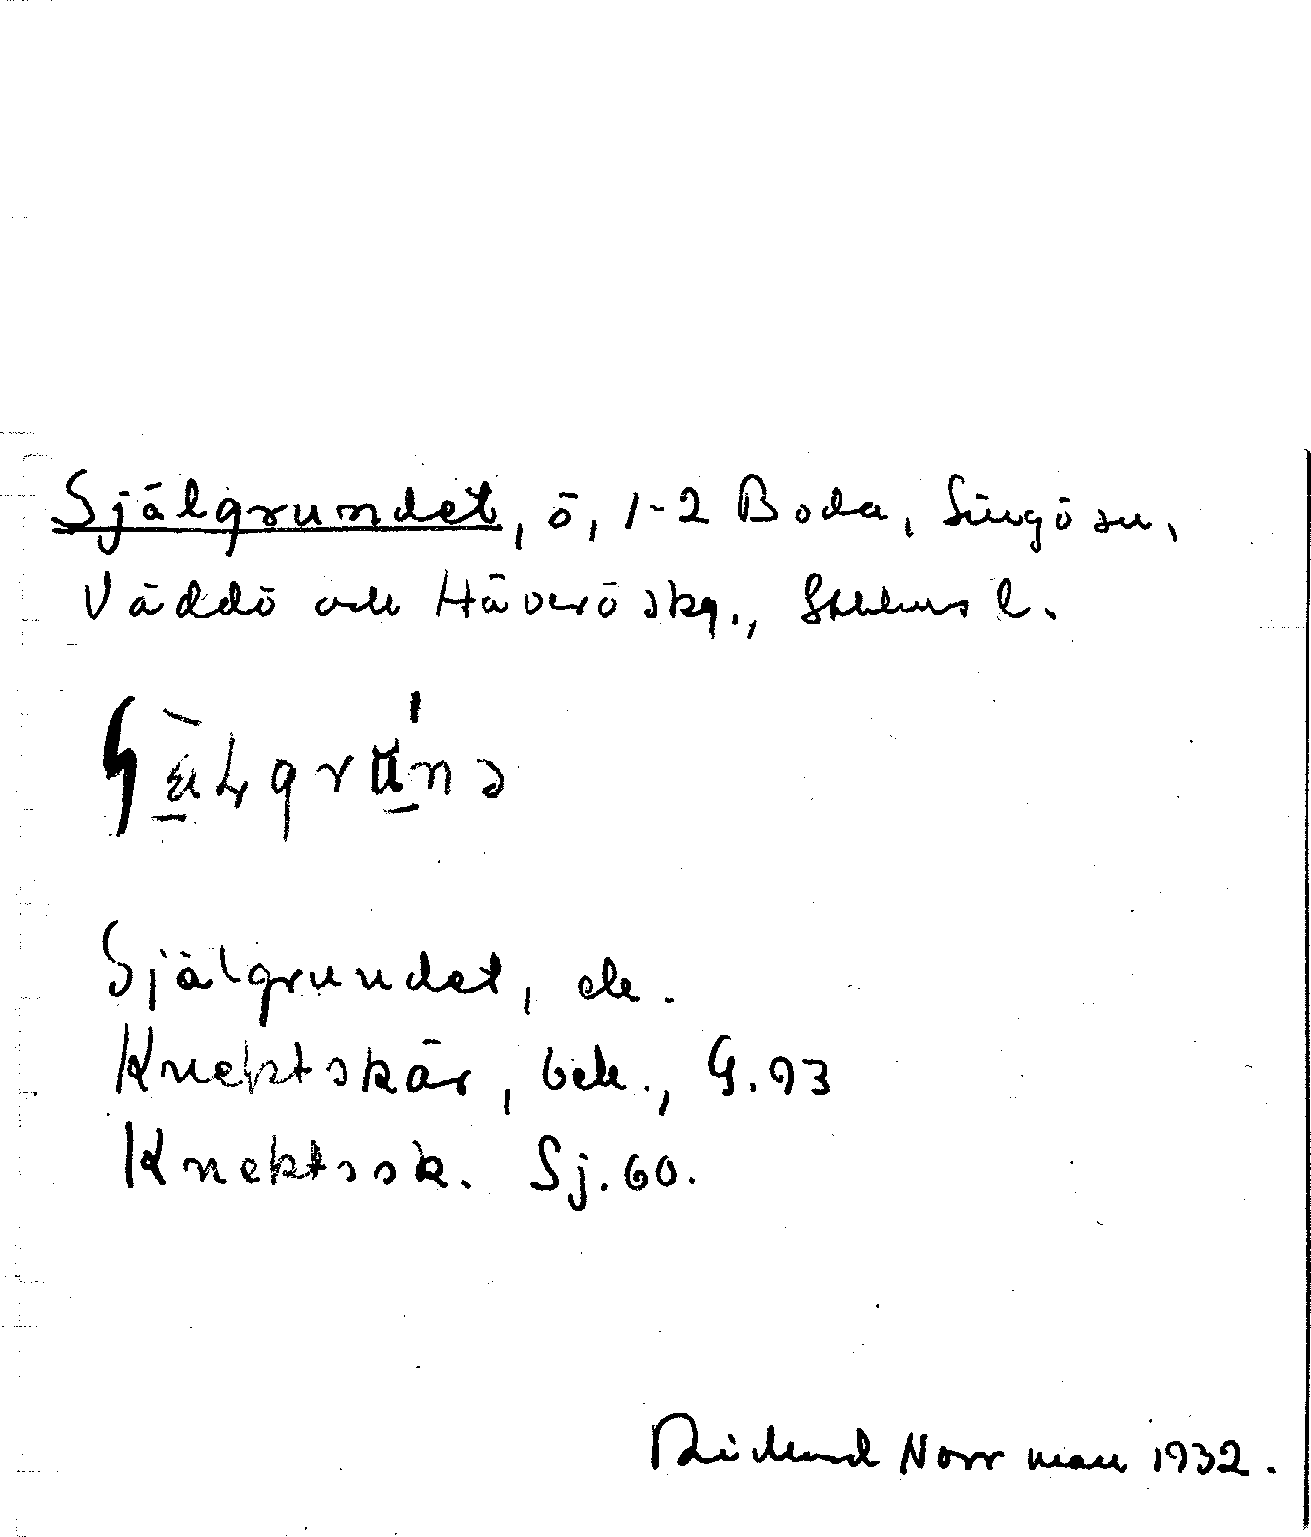 Själgrundet, ö, 1-2 Boda, Singö sn,
Väddö och Häverö skg., Sthlms l.
Själgrundet, ek.
Knektskär, bek., G.93
Knektssk. Sj.60.
Rickard Norrman 1932.